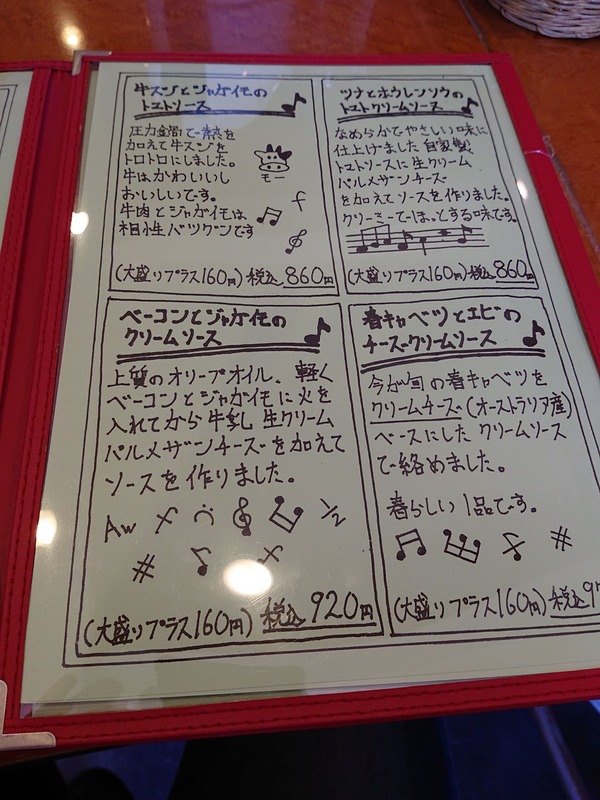 牛スジとジャガイモの
トマトソース
圧力釜で熱を
加えて牛スジを
トロトロにしました。
牛はかわいいし
おいしいです。
牛肉とジャガイモは
相性バツグンです
モー
(大盛りプラス160円) 税込 860円
ツナとホウレンソウの
トマトクリームソース
なめらかでやさしい味に
仕上げました 自家製
トマトソースに生クリーム
パルメザンチーズ
を加えてソースを作りました。
クリーミーでほっとする味です。
(大盛りプラス160円) 税込 860円
ベーコンとジャガイモの
クリームソース
上質のオリーブオイル、軽く
ベーコンとジャガイモに火を
入れてから牛乳 生クリーム
パルメザンチーズを加えて
ソースを作りました。
Aw f 1/2
# f
(大盛りプラス160円) 税込 920円
春キャベツとエビの
チーズクリームソース
今が旬の春キャベツを
クリームチーズ(オーストラリア産)
ベースにしたクリームソース
で絡めました。
春らしい1品です。
#
(大盛りプラス160円) 税込